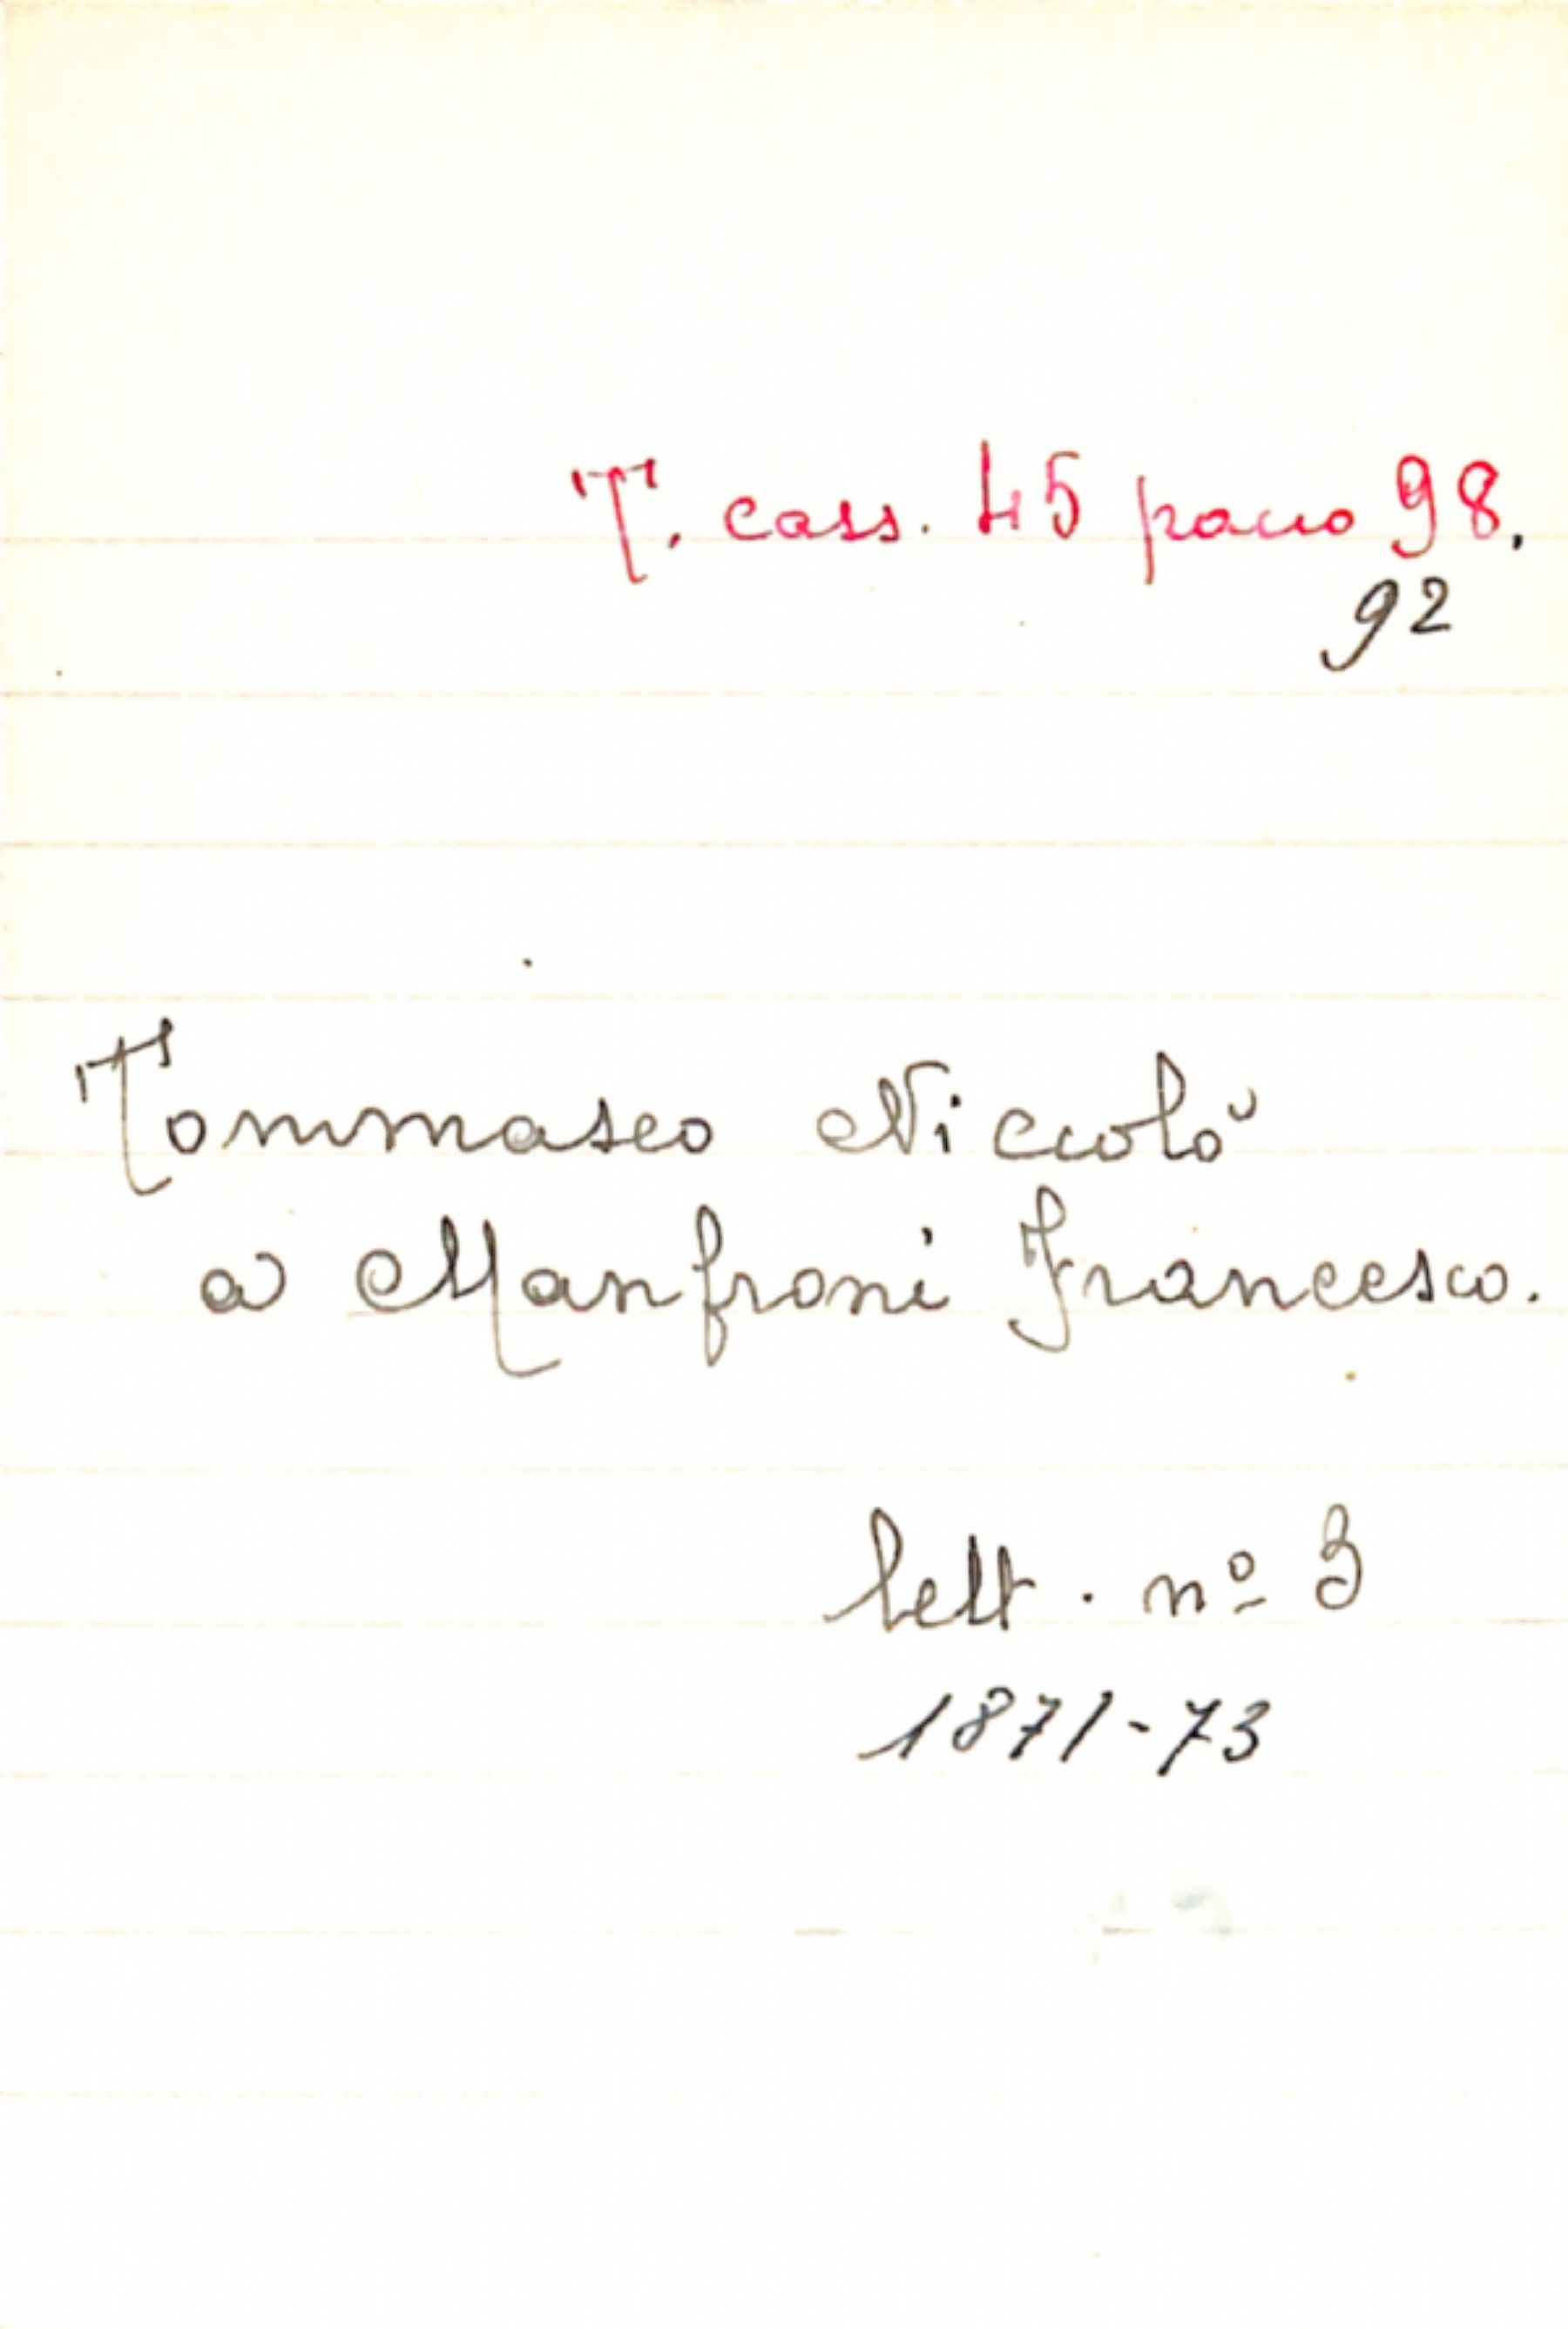 T. cass. 45 pacco 98.
92
Tommaseo Niccolò
a Manfroni Francesco.
lett. nº 3
1871-73